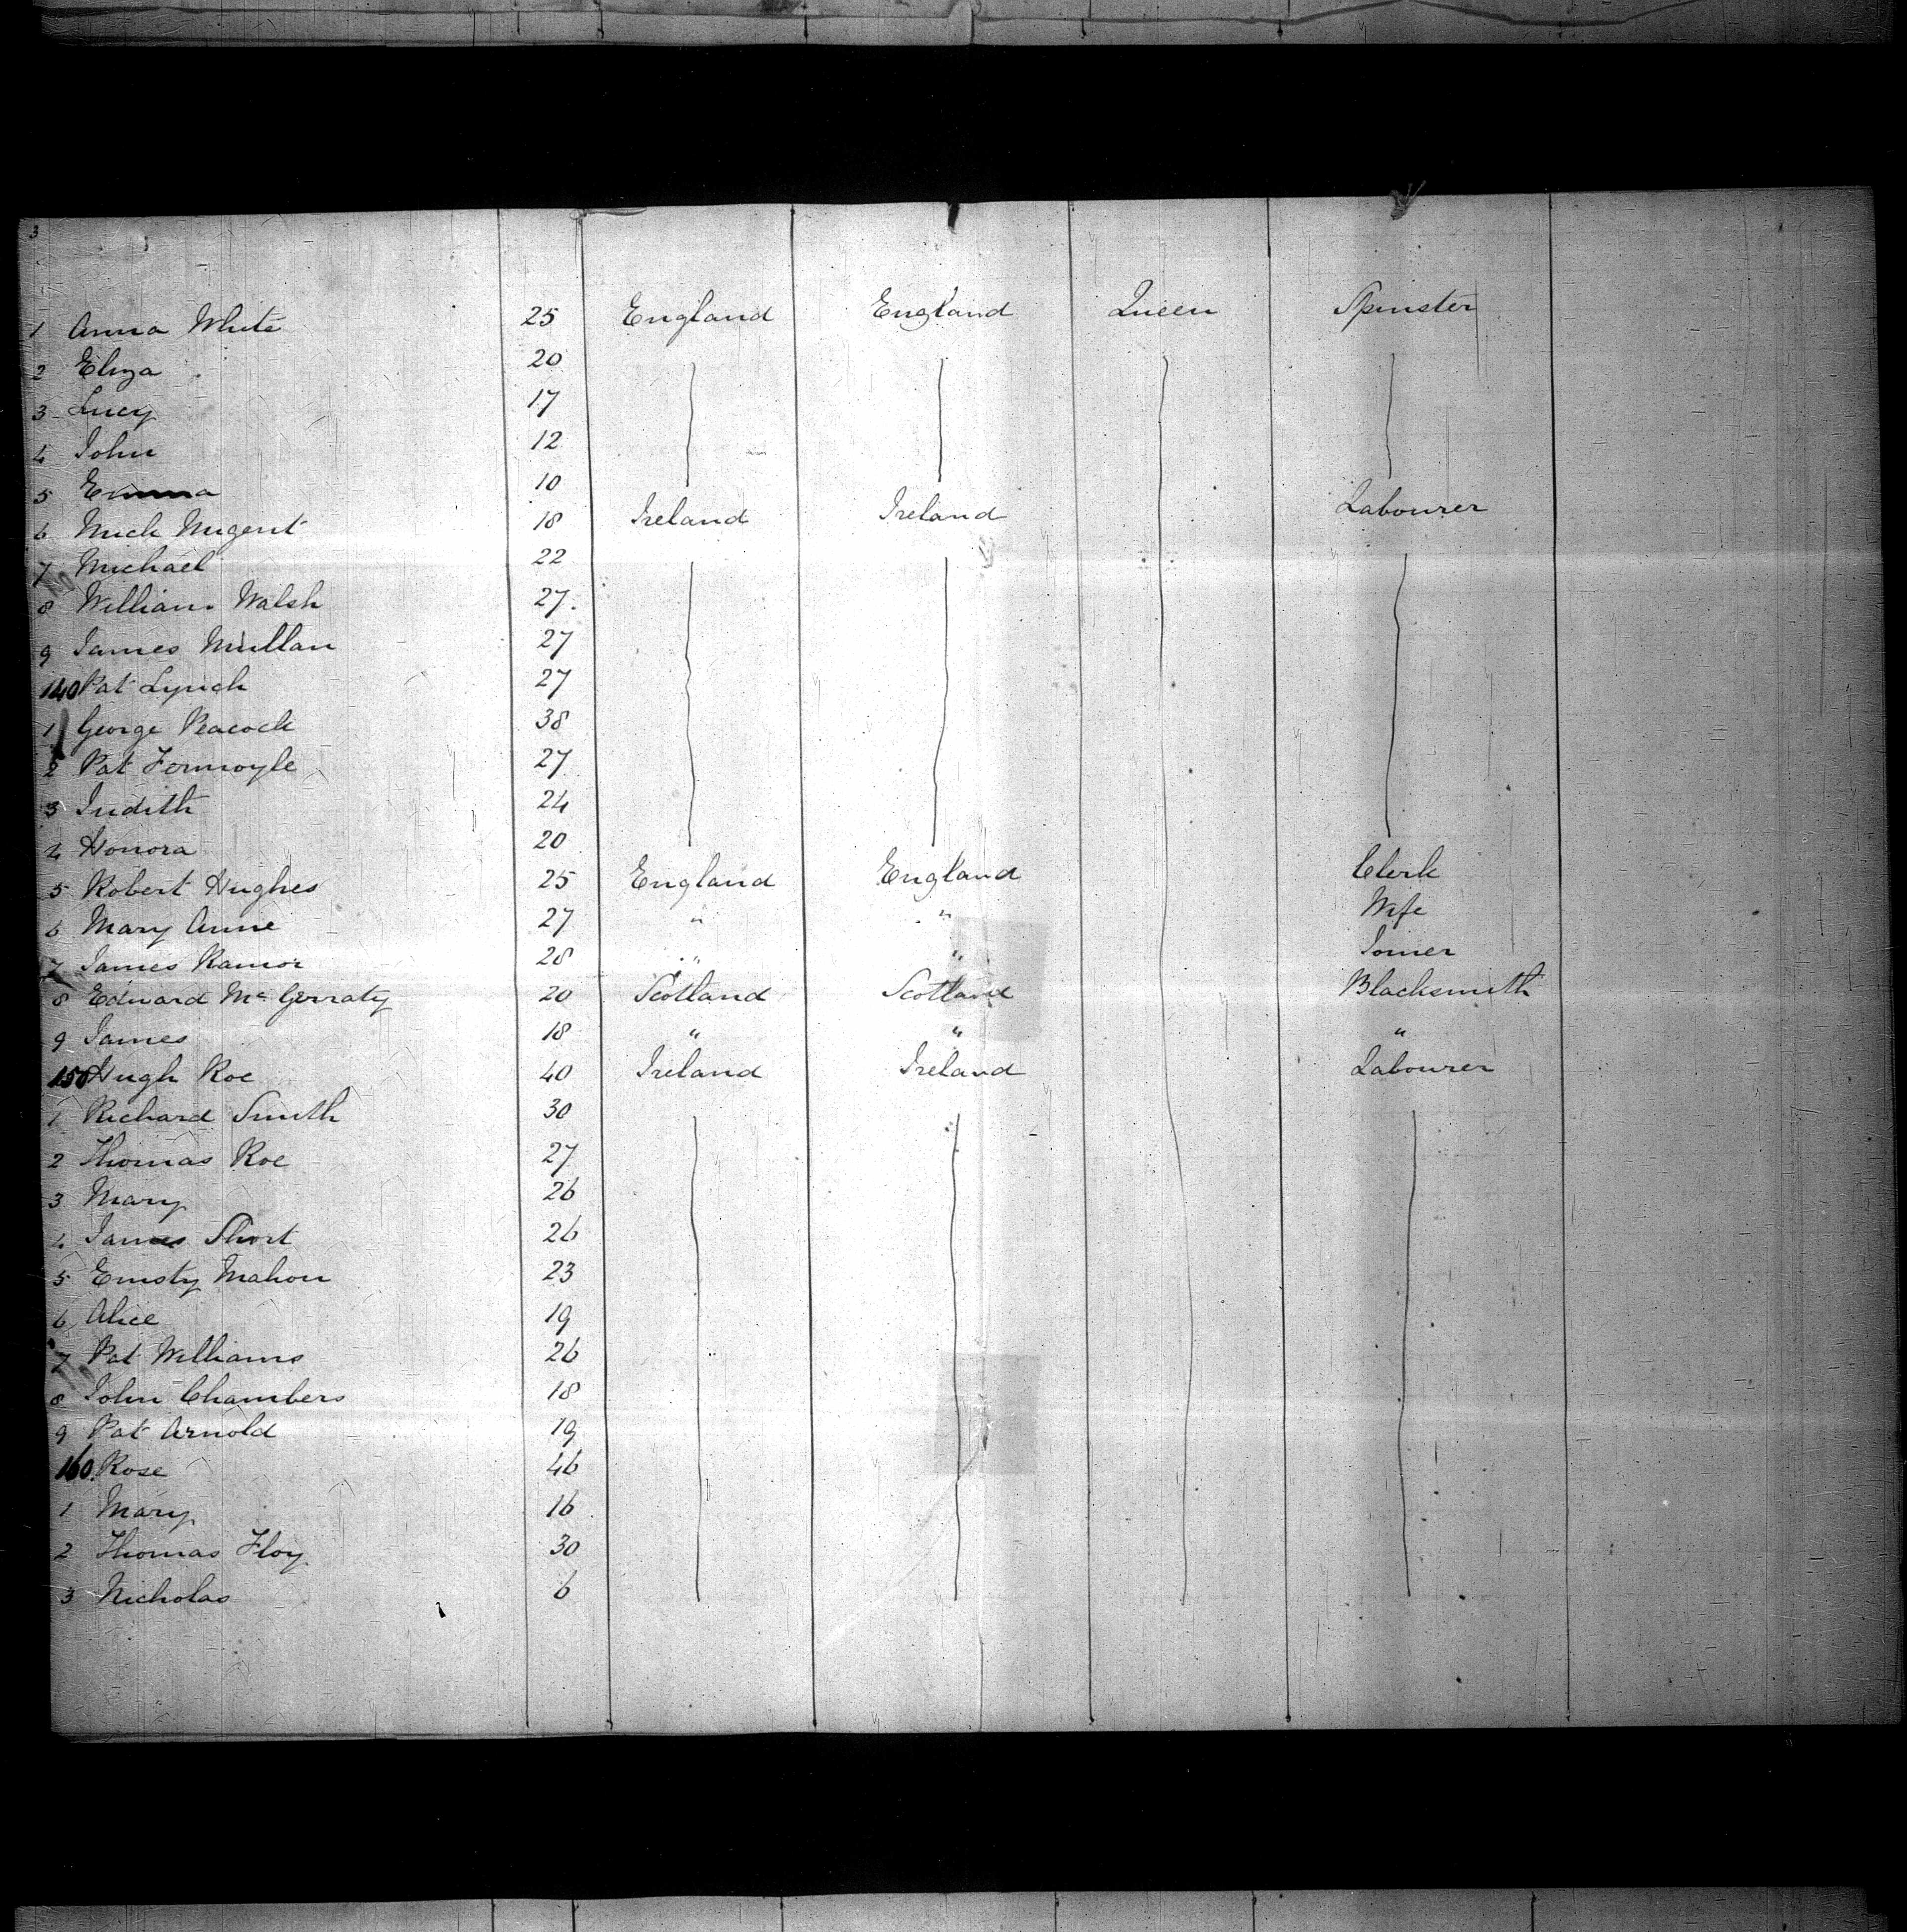 3
1 Anna White 25 England England Queen Spinster
2 Eliza 20
3 Lucy 17
4 John 12
5 Emma 10
6 Mick Nugent 18 Ireland Ireland Labourer
7 Michael 22
8 William Walsh 27.
9 James Mullan 27
140 Pat Lynch 27
1 George Peacock 38
2 Pat Fermoyle 27
3 Judith 24
4 Honora 20
5 Robert Hughes 25 England England Clerk
6 Mary Anne 27 " " Wife
7 James 28 " " Joiner
8 Edward Mc Gerraty 20 Scotland Scotland Blacksmith
9 James 18 " " "
150 Hugh Roe 40 Ireland Ireland Labourer
1 Richard Smith 30
2 Thomas Roe 27
3 Mary 26
4 James Short 26
5 Mahon 23
6 Alice 19
7 Pat Williams 26
8 John Chambers 18
9 Pat Arnold 19
160 Rose 46
1 Mary 16
2 Thomas Floy 30
3 Nicholas 6